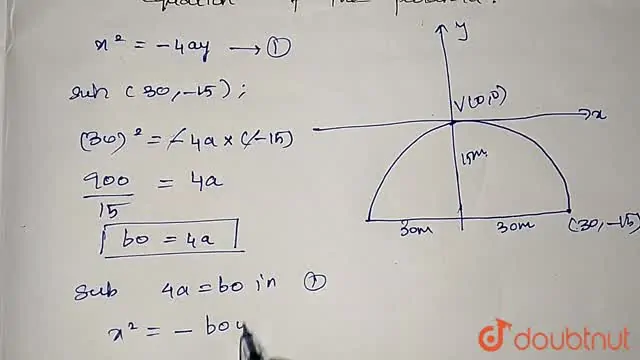 equation of the parabola.
x² = -4ay → ①
sub (30, -15);
(30)² = -4a x (-15)
900/15 = 4a
60 = 4a
Sub 4a = 60 in ①
x² = - 60y
y
V(0,0)
x
15m
30m 30m (30, -15)
doubtnut